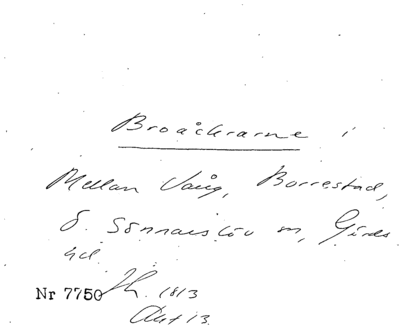 Broåkrarne i
Mellan Vång, Borrestad,
Ö. Sönnarslöv sn, Gärds
hd.
Nr 7750 Sk. 1813
Akt 13.